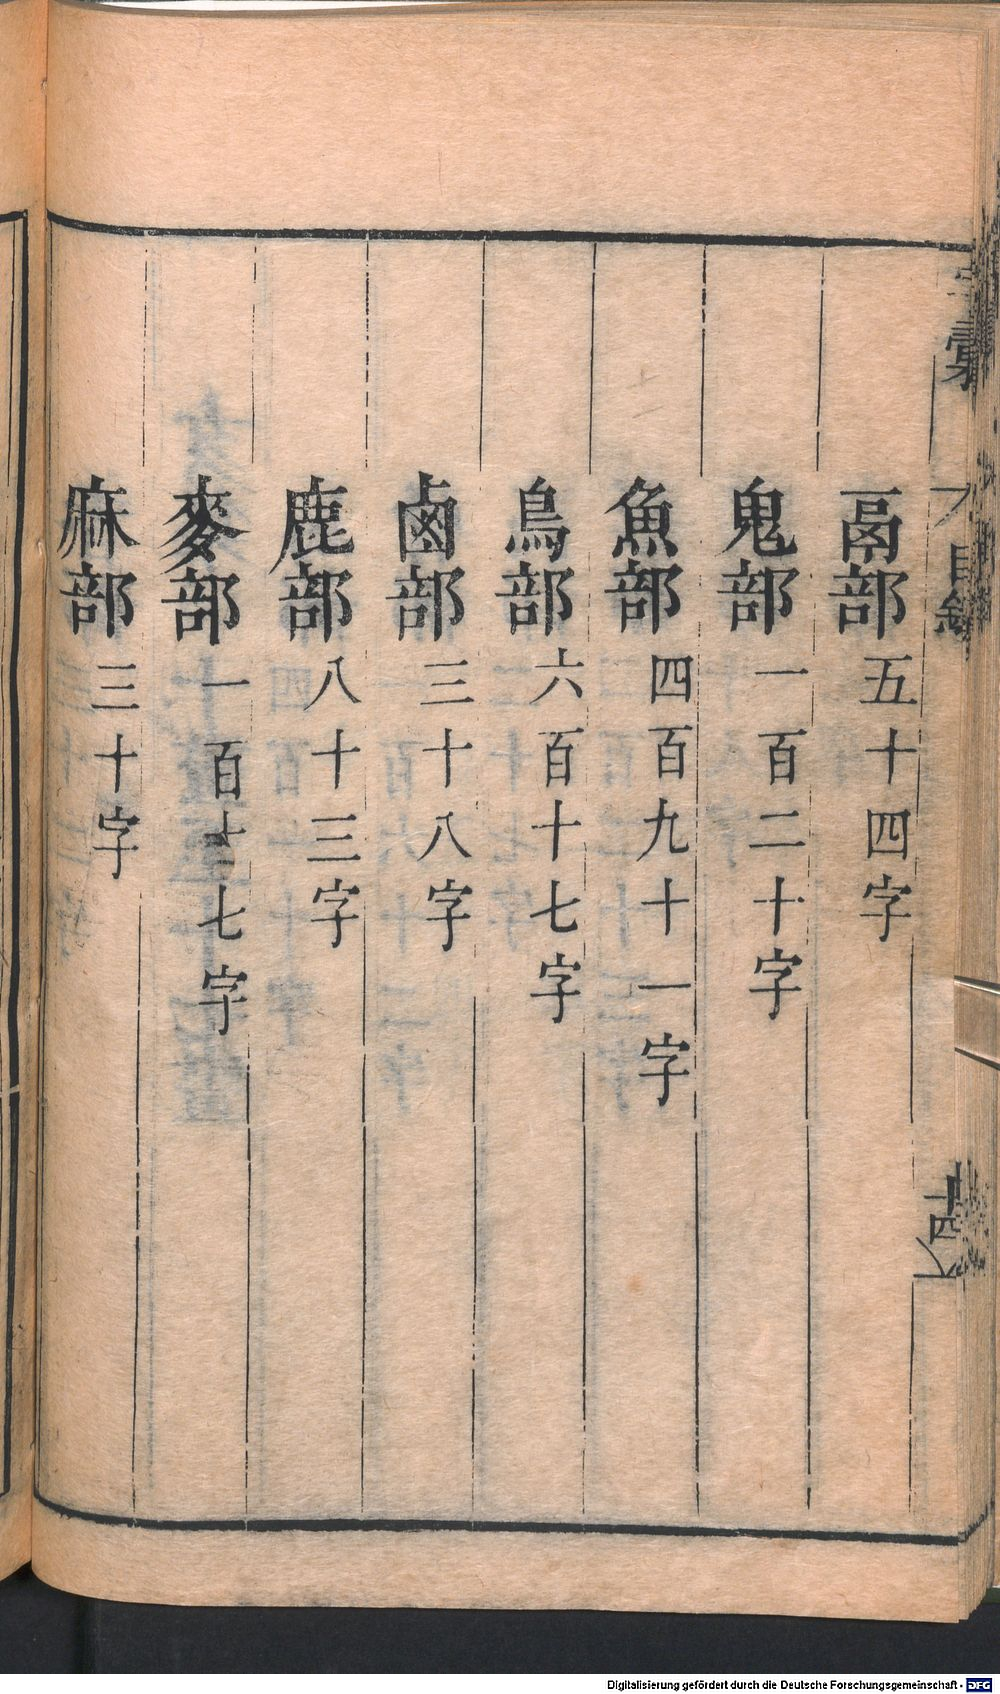 字彙 目錄 十四
鬲部 五十四字
鬼部 一百二十字
魚部 四百九十一字
鳥部 六百十七字
鹵部 三十八字
鹿部 八十三字
麥部 一百十七字
麻部 三十字
Digitalisierung gefördert durch die Deutsche Forschungsgemeinschaft - DFG